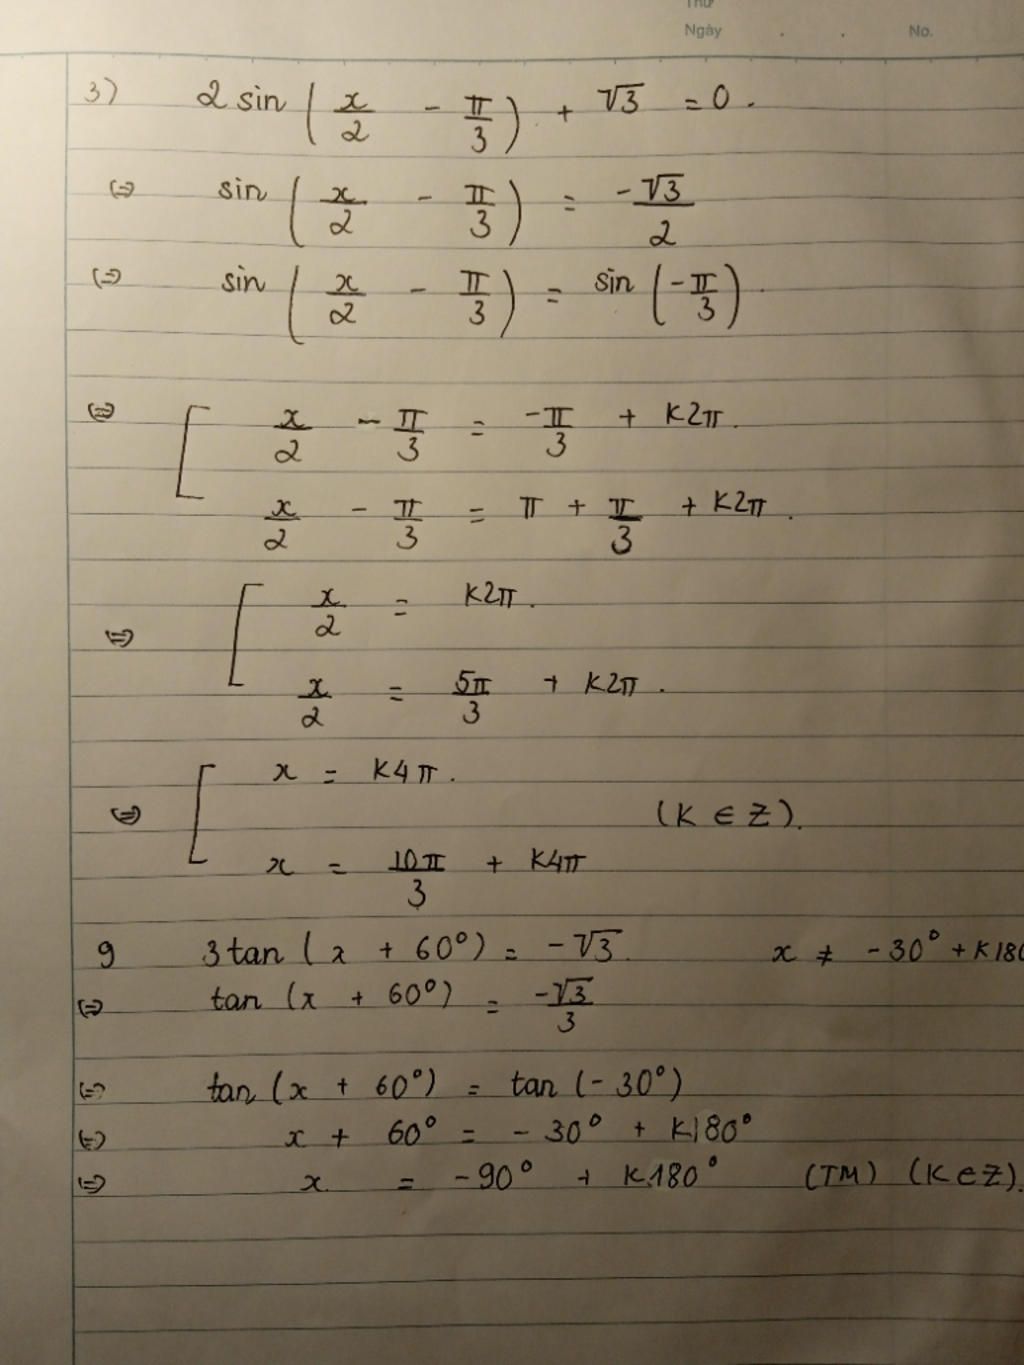 Thứ
Ngày . . No.
3) 2 sin (x/2 - π/3) + √3 = 0.
⇔ sin (x/2 - π/3) = -√3/2
⇔ sin (x/2 - π/3) = sin (-π/3).
⇔ [ x/2 - π/3 = -π/3 + K2π.
x/2 - π/3 = π + π/3 + K2π.
⇔ [ x/2 = K2π.
x/2 = 5π/3 + K2π.
⇔ [ x = K4π.
(K ∈ Z).
x = 10π/3 + K4π
9 3tan (x + 60°) = -√3. x ≠ -30° + K180
⇔ tan (x + 60°) = -√3/3
⇔ tan (x + 60°) = tan (-30°)
⇔ x + 60° = -30° + K180°
⇔ x = -90° + K180° (TM) (K ∈ Z).